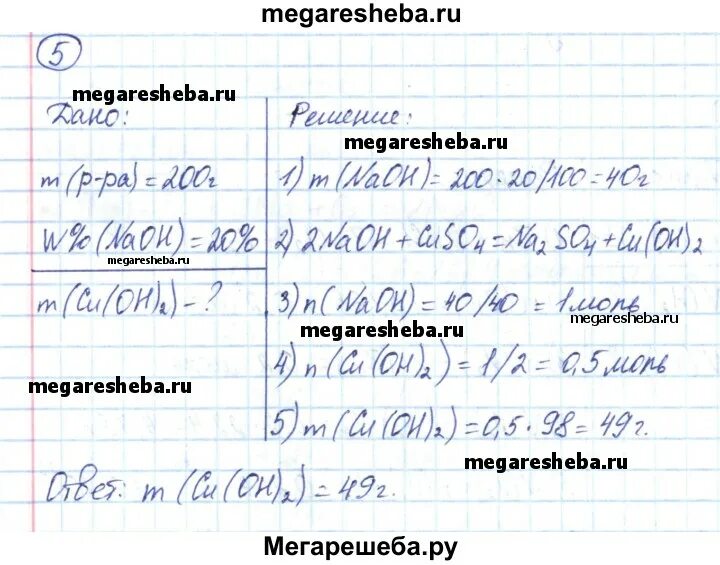 megaresheba.ru
5
megaresheba.ru
Дано:
Решение:
megaresheba.ru
m(р-ра)=200г
1) m(NaOH)=200·20/100=40г
W%(NaOH)=20%
2) 2NaOH+CuSO₄=Na₂SO₄+Cu(OH)₂
megaresheba.ru
m(Cu(OH)₂)-?
3) n(NaOH)=40/40=1моль
megaresheba.ru
megaresheba.ru
4) n(Cu(OH)₂)=1/2=0,5моль
megaresheba.ru
5) m(Cu(OH)₂)=0,5·98=49г.
megaresheba.ru
Ответ: m(Cu(OH)₂)=49г.
Мегарешеба.ру